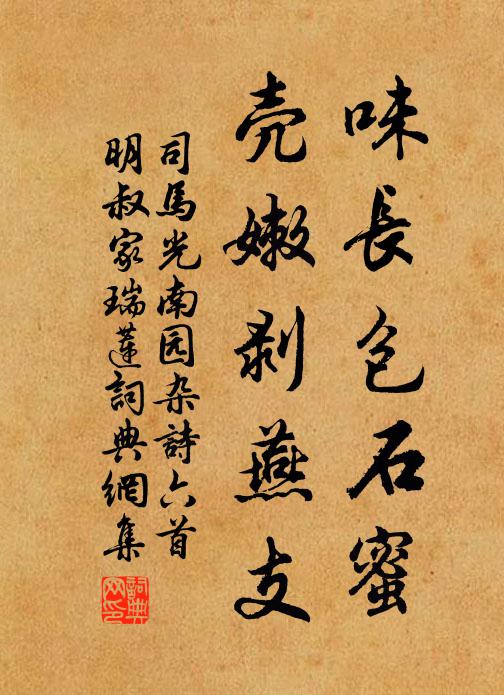 味長包石蜜
壳嫩剥燕支
司馬光南园杂詩六首
明叔家瑞蓮詞典網集
詞典网印